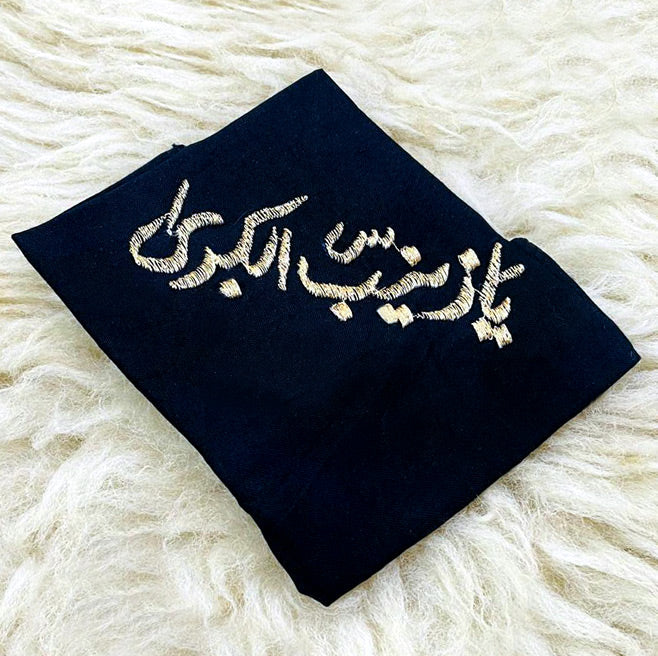 یا زینب الکبری س